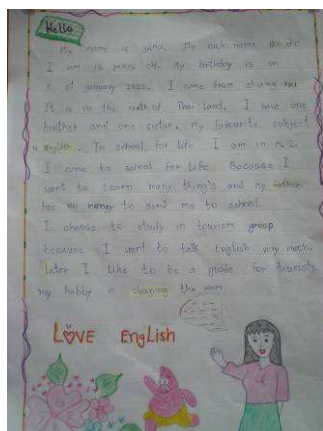 Hello
My name is My nick name
I am years old. My birthday is on
of january I come from chiang rai
It is in the north of Thai land. I have one
brother and one sister. My favourite subject
is english. In school for life I am in M.
I come to school for life Because I
want to learn many thing's and my mother
has no money to send me to school.
I choose to study in tourism group
because I want to talk English very much.
Later I like to be a guide for tourists
my hobby is cleaning the room
LOVE EngLish